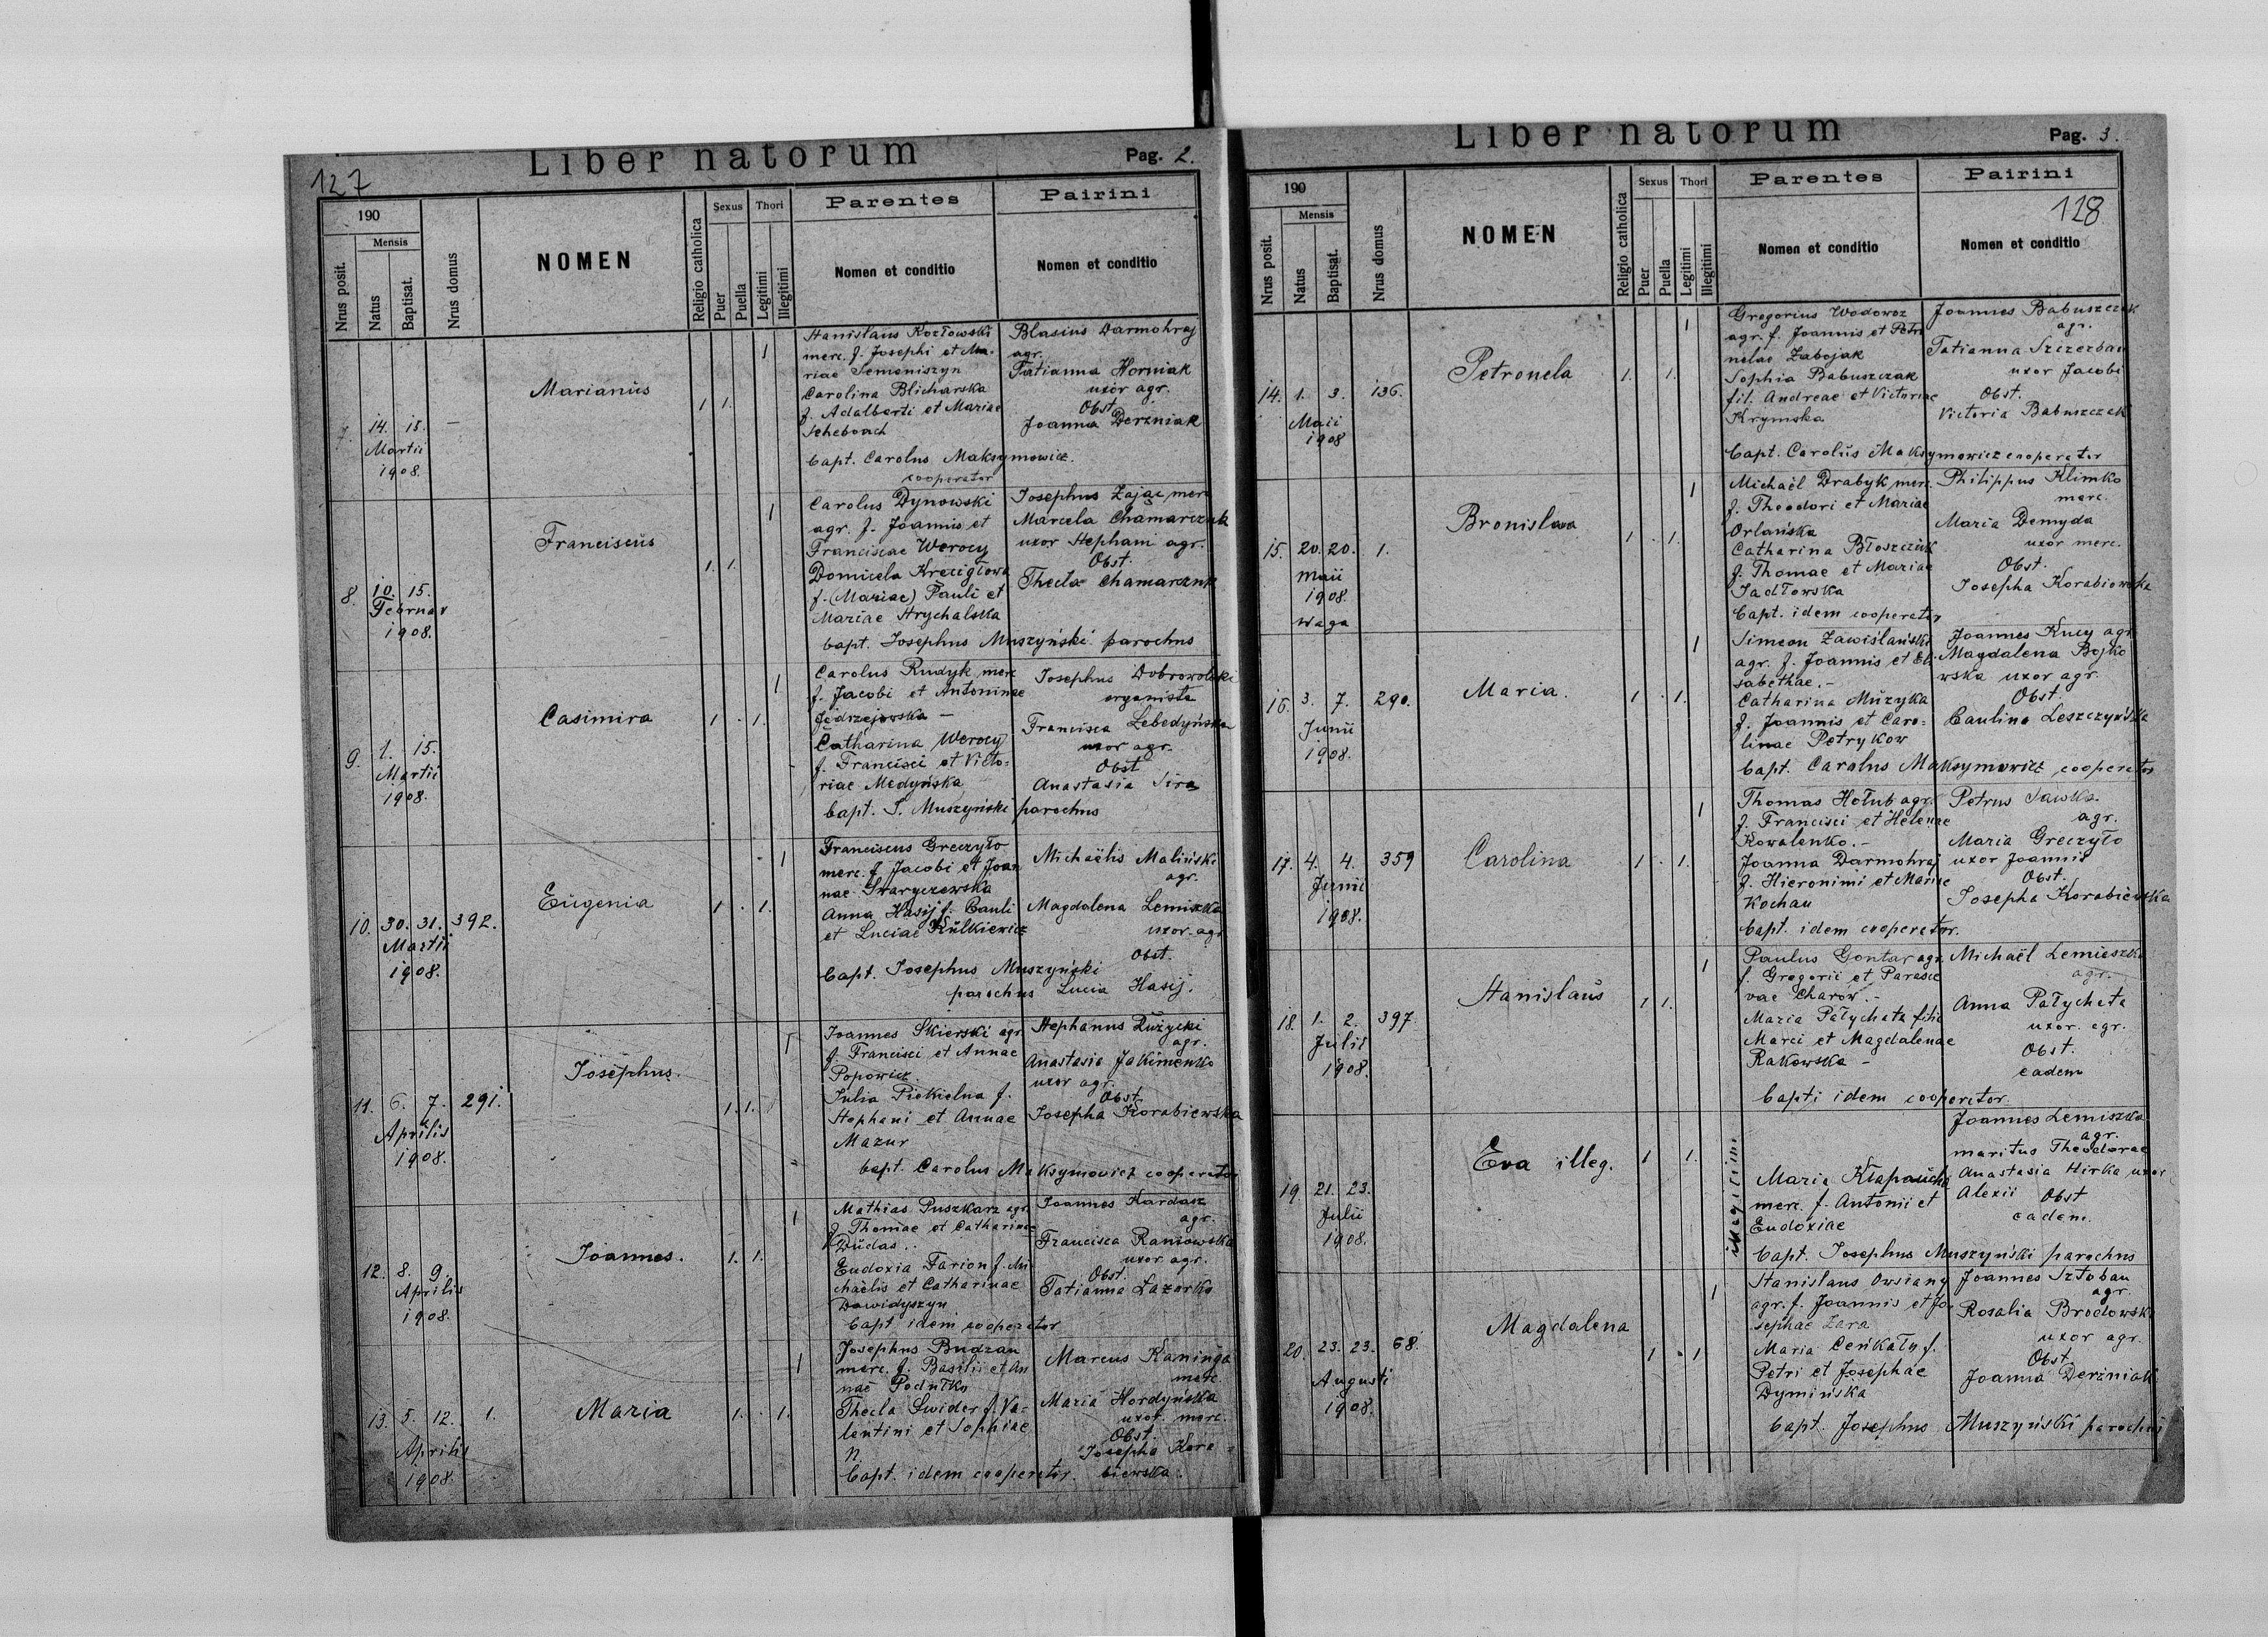 127
Liber natorum
Pag. 2.
190
Mensis
Nrus posit.
Natus
Baptisat.
Nrus domus
NOMEN
Religio catholica
Sexus
Puer
Puella
Thori
Legitimi
Illegitimi
Parentes
Nomen et conditio
Pairini
Nomen et conditio
7. 14. 15. —
Martii
1908.
Marianus
1 1.
1
Stanislaus Kozłowski
merc. f. Josephi et Ma-
riae Semeniszyn
Carolina Blicharska
f. Adalberti et Mariae
bapt. Carolus Maksymowicz.
cooperator
Blasius Darmohraj
agr.
Tatianna Horniak
uxor agr.
Obst.
Joanna Derzniak
8. 10. 15.
Februar
1908.
Franciscus
1. 1.
1
Carolus Dynowski
agr. f. Joannis et
Franciscae Werocy
Domicela Kreciglowa
f. (Mariae) Pauli et
Mariae Strychalska
bapt. Josephus Muszyński parochus
Josephus Zając merc
Marcela Chamarczuk
uxor Stephani agr.
Obst.
Thecla Chamarczuk
9. 1. 15.
Martii
1908.
Casimira
1 . 1.
1
Carolus Rudyk merc
f. Jacobi et Antoninae
Jedrzejowska —
Catharina Werocy
f. Francisci et Victo-
riae Medyńska
bapt. J. Muszyński parochus
Josephus Dobrowolski
organista
Francisca Lebedyńska
uxor agr.
Obst
Anastasia Sira
10. 30. 31. 392.
Martii
1908.
Eugenia
1 . 1.
1
Franciscus Greczyło
merc. f. Jacobi et Joan
nae Swaryczewska
Anna Hasij f. Pauli
et Luciae Kulkiewicz
bapt. Josephus Muszyński
parochus
Michaëlis Maliński
agr.
Magdalena Lemiszka
uxor agr
Obst.
Lucia Hasij.
11. 6. 7. 291.
Aprilis
1908.
Josephus.
1. 1.
1
Joannes Skierski agr
f. Francisci et Annae
Popowicz.
Julia Piekielna f.
Stephani et Annae
Mazur
bapt. Carolus Maksymowicz cooperator
Stephanus Różycki
agr.
Anastasia Jakimenko
uxor agr.
Obst.
Josepha Korabiewska
12. 8. 9.
Aprilis
1908.
Joannes.
1. 1.
1
Mathias Puszkarz agr.
f. Thomae et Catharinae
Dudas..
Eudoxia Farion f. Mi
chaëlis et Catharinae
Dawidyszyn
bapt idem cooperator
Joannes Kardasz
agr.
Francisca Raniowska
uxor agr.
Obst.
Tatianna Lazarko
13. 5. 12. 1.
Aprilis
1908.
Maria
1. . 1.
1
Josephus Budzan
merc. f. Basilii et An
nae Podułko
Thecla Swider f. Va-
lentini et Sophiae
N.
bapt. idem cooperator.
Marcus Kaminga
merc.
Maria Hordyńska
uxor. merc.
Obst.
Josepha Kora-
biewska.
Liber natorum
Pag. 3.
128
190
Mensis
Nrus posit.
Natus
Baptisat.
Nrus domus
NOMEN
Religio catholica
Sexus
Puer
Puella
Thori
Legitimi
Illegitimi
Parentes
Nomen et conditio
Pairini
Nomen et conditio
14. 1. 3. 136.
Maii
1908
Petronela
1. . 1.
1
Gregorius Wodoroz
agr. f. Joannis et Petro
nelae Zabojak
Sophia Babuszczak
fil. Andreae et Victoriae
Krymska
bapt. Carolus Maksymowicz cooperator
Joannes Babuszczak
agr.
Tatianna Szczerban
uxor Jacobi
Obst.
Victoria Babuszczak
15. 20. 20. 1.
Maii
1908.
waga
Bronislava
1 . 1.
1
Michaël Drabyk merc.
f. Theodori et Mariae
Orlańska
Catharina Błoszczuk
f. Thomae et Mariae
Sadłowska
bapt. idem cooperator
Philippus Klimko
merc.
Maria Demyda
uxor merc.
Obst.
Josepha Korabiowska
16. 3. 7. 290.
Junii
1908.
Maria.
1 . 1.
1
Simeon Zawislański
agr. f. Joannis et Eli
sabethae.-
Catharina Muzyka
f. Joannis et Caro-
linae Petrykow
bapt. Carolus Maksymowicz cooperator
Joannes Kucy agr
Magdalena Bojko
wska uxor agr.
Obst.
Paulina Leszczyńska
17. 4. 4. 359
Junii
1908.
Carolina
1 . 1.
1
Thomas Hołub agr.
f. Francisci et Helenae
Kowalenko.-
Joanna Darmohraj
f. Hieronimi et Mariae
Kochan
bapt. idem cooperator.
Petrus Sawka.
agr.
Maria Greczyło
uxor Joannis
Obst.
Josepha Korabiewska
18. 1. 2. 397.
Julii
1908.
Stanislaus
1 1.
1
Paulus Gontar agr.
f. Gregorii et Parasce
vae Charow.-
Maria Pałychata filia
Marci et Magdalenae
Rakowska -
bapti idem cooperator
Michaël Lemieszka
agr.
Anna Pałychata
uxor. agr.
Obst.
eadem
19. 21. 23.
Julii
1908.
Eva illeg.
1 1.
illegitimi
Maria Kłapaucha
merc. f. Antonii et
Eudoxiae
bapt. Josephus Muszyński parochus
Joannes Lemiszka
agr.
maritus Theodorae
Anastasia Hirka uxor
Alexii Obst
eadem.
20. 23. 23. 68.
Augusti
1908.
Magdalena
1 . 1
1
Stanislaus Owsiany
agr. f. Joannis et Jo
sephae Zara
Maria Ceńkały f.
Petri et Josephae
Dymińska
bapt. Josephus Muszyński parochus
Joannes Sztoban
agr.
Rosalia Brodowska
uxor agr.
Obst.
Joanna Derzniak